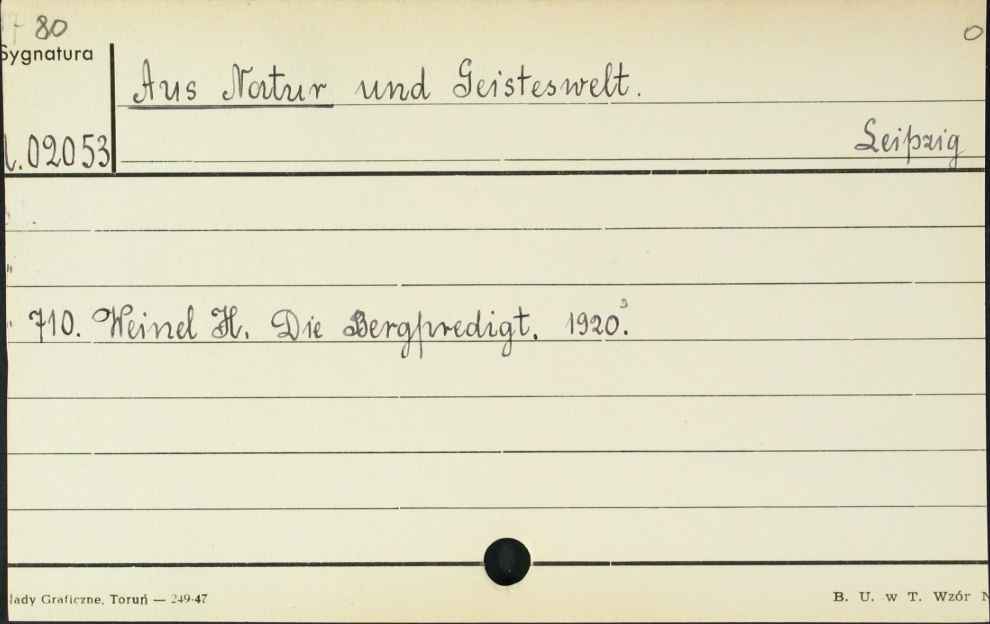 80
Sygnatura
Aus Natur und Geisteswelt.
.02053
Leipzig
710. Weinel H. Die Bergpredigt. 1920³.
lady Graficzne, Toruń — 249-47
B. U. w T. Wzór N